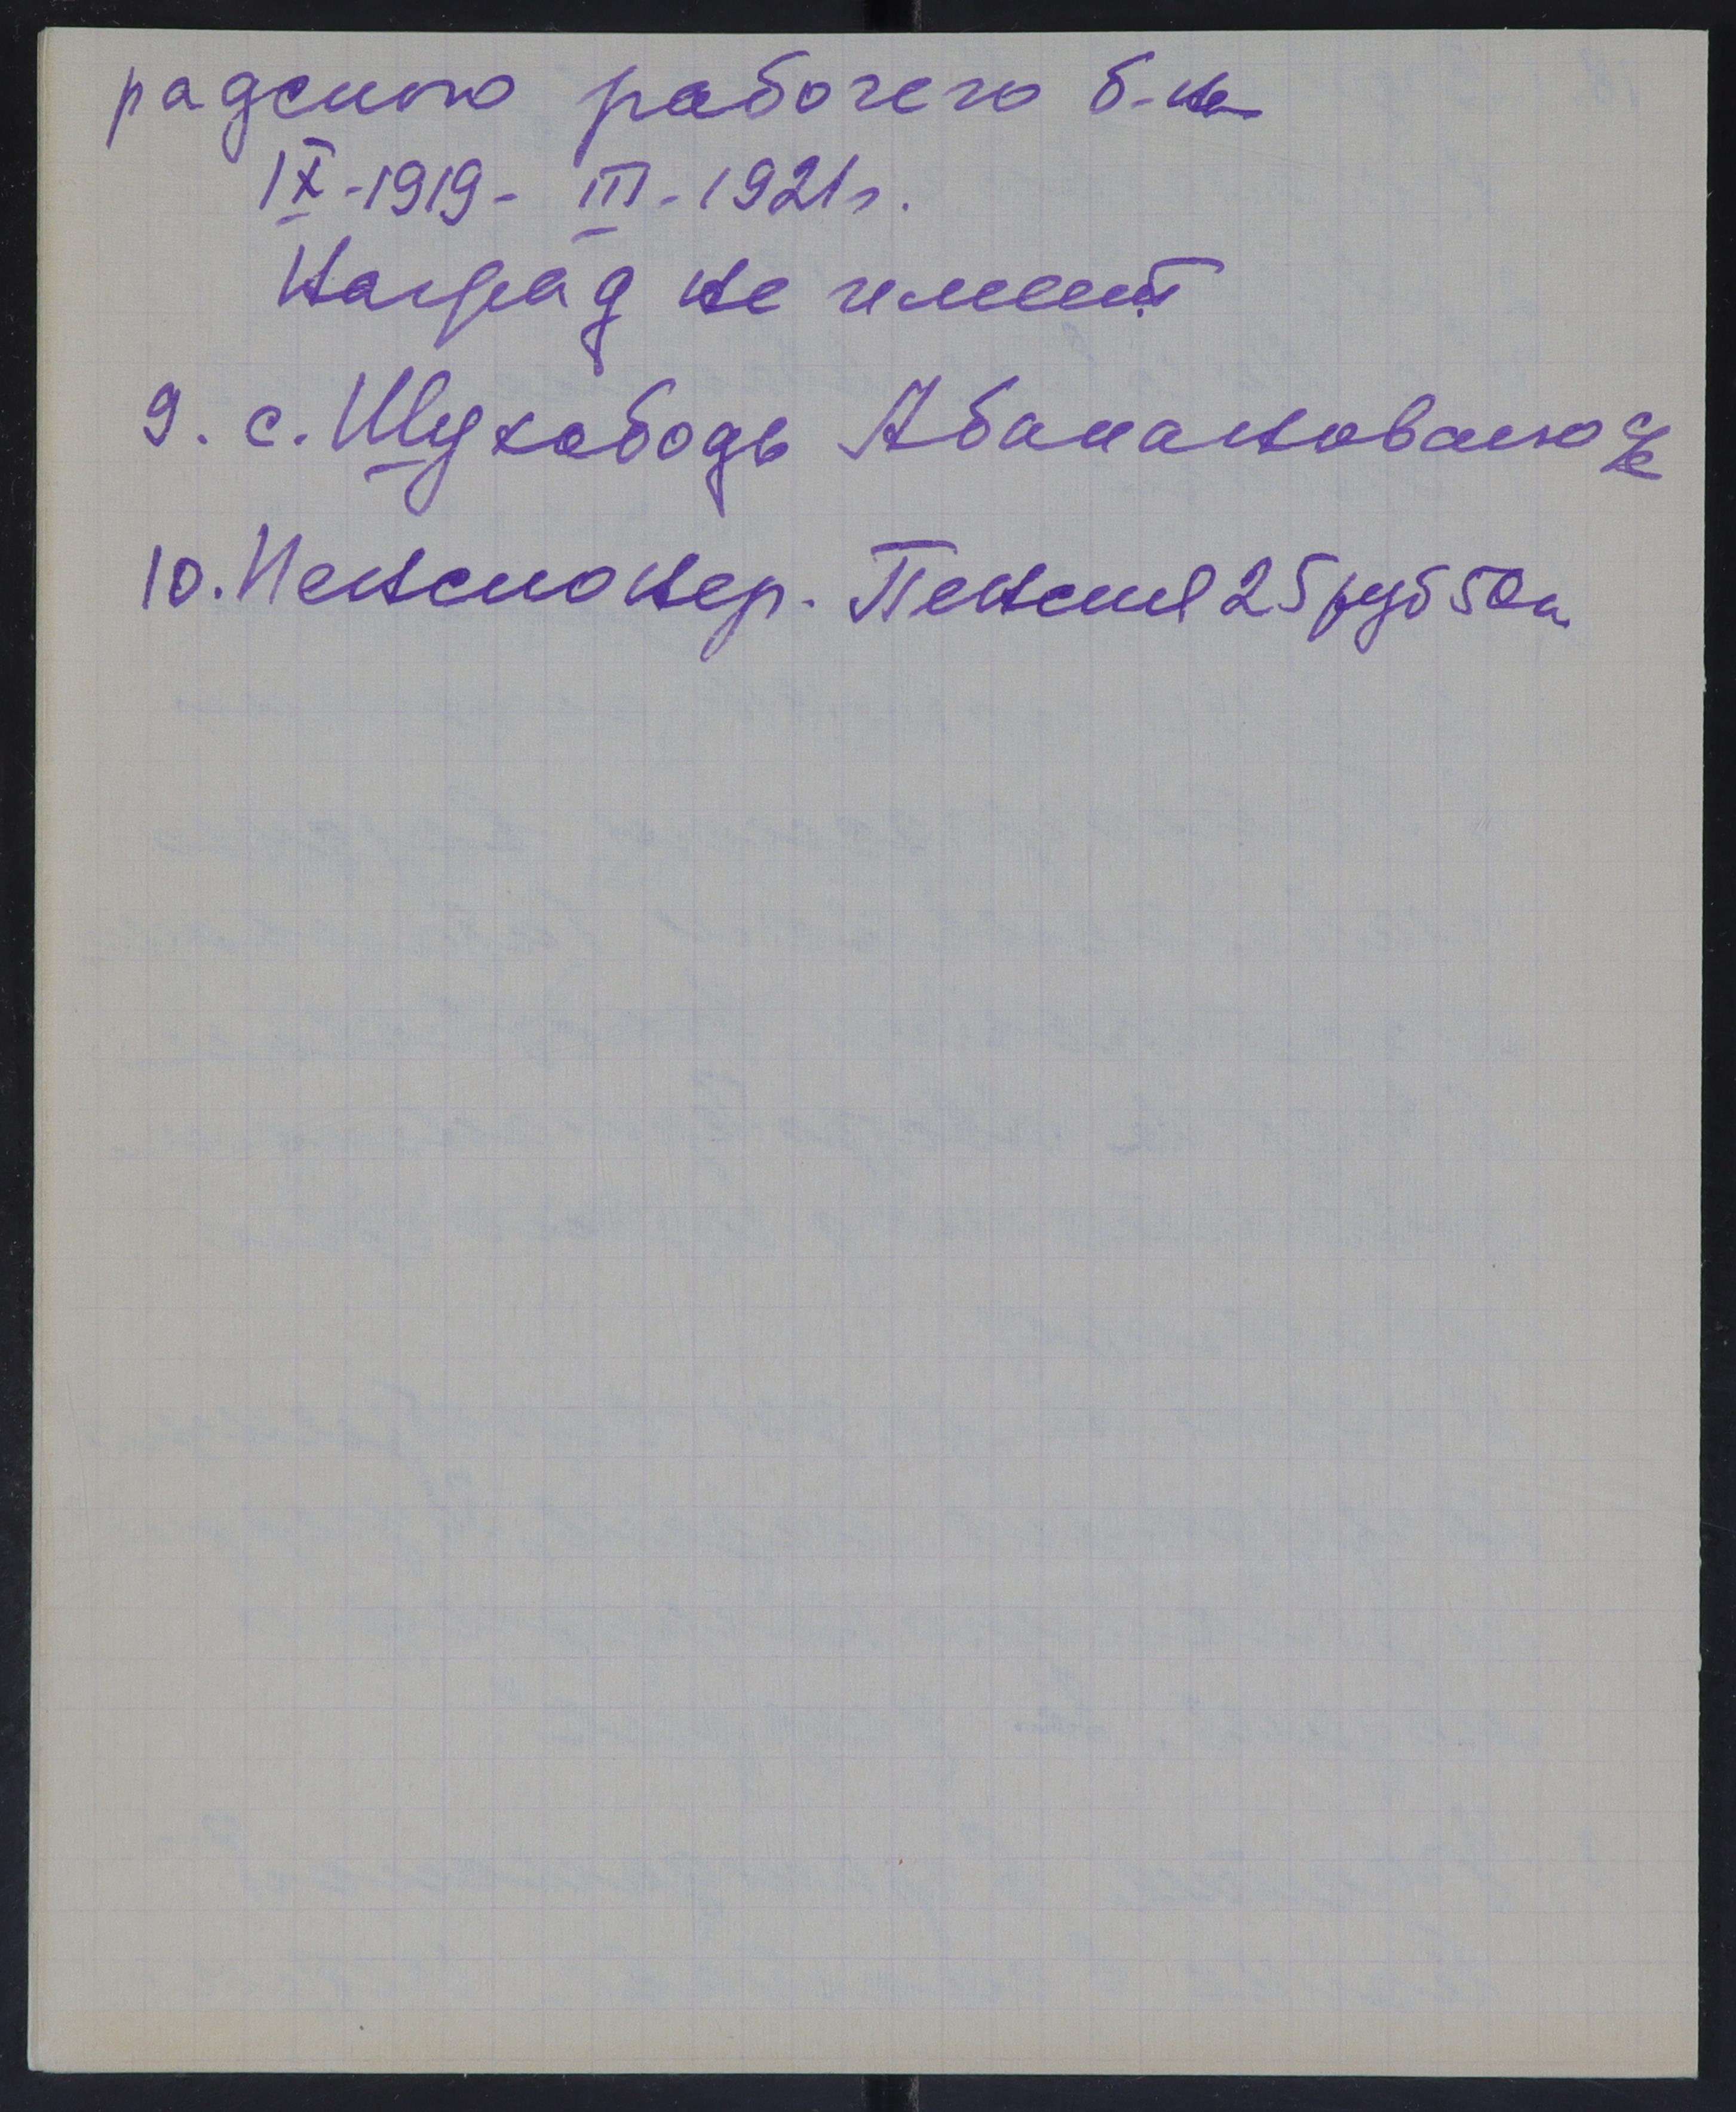 радского рабочего б-на
IX-1919- III-1921г.
Наград не имеет
9. с. Шухободь Абакановского с/с
10. Пенсионер. Пенсия 25 руб 50 к.